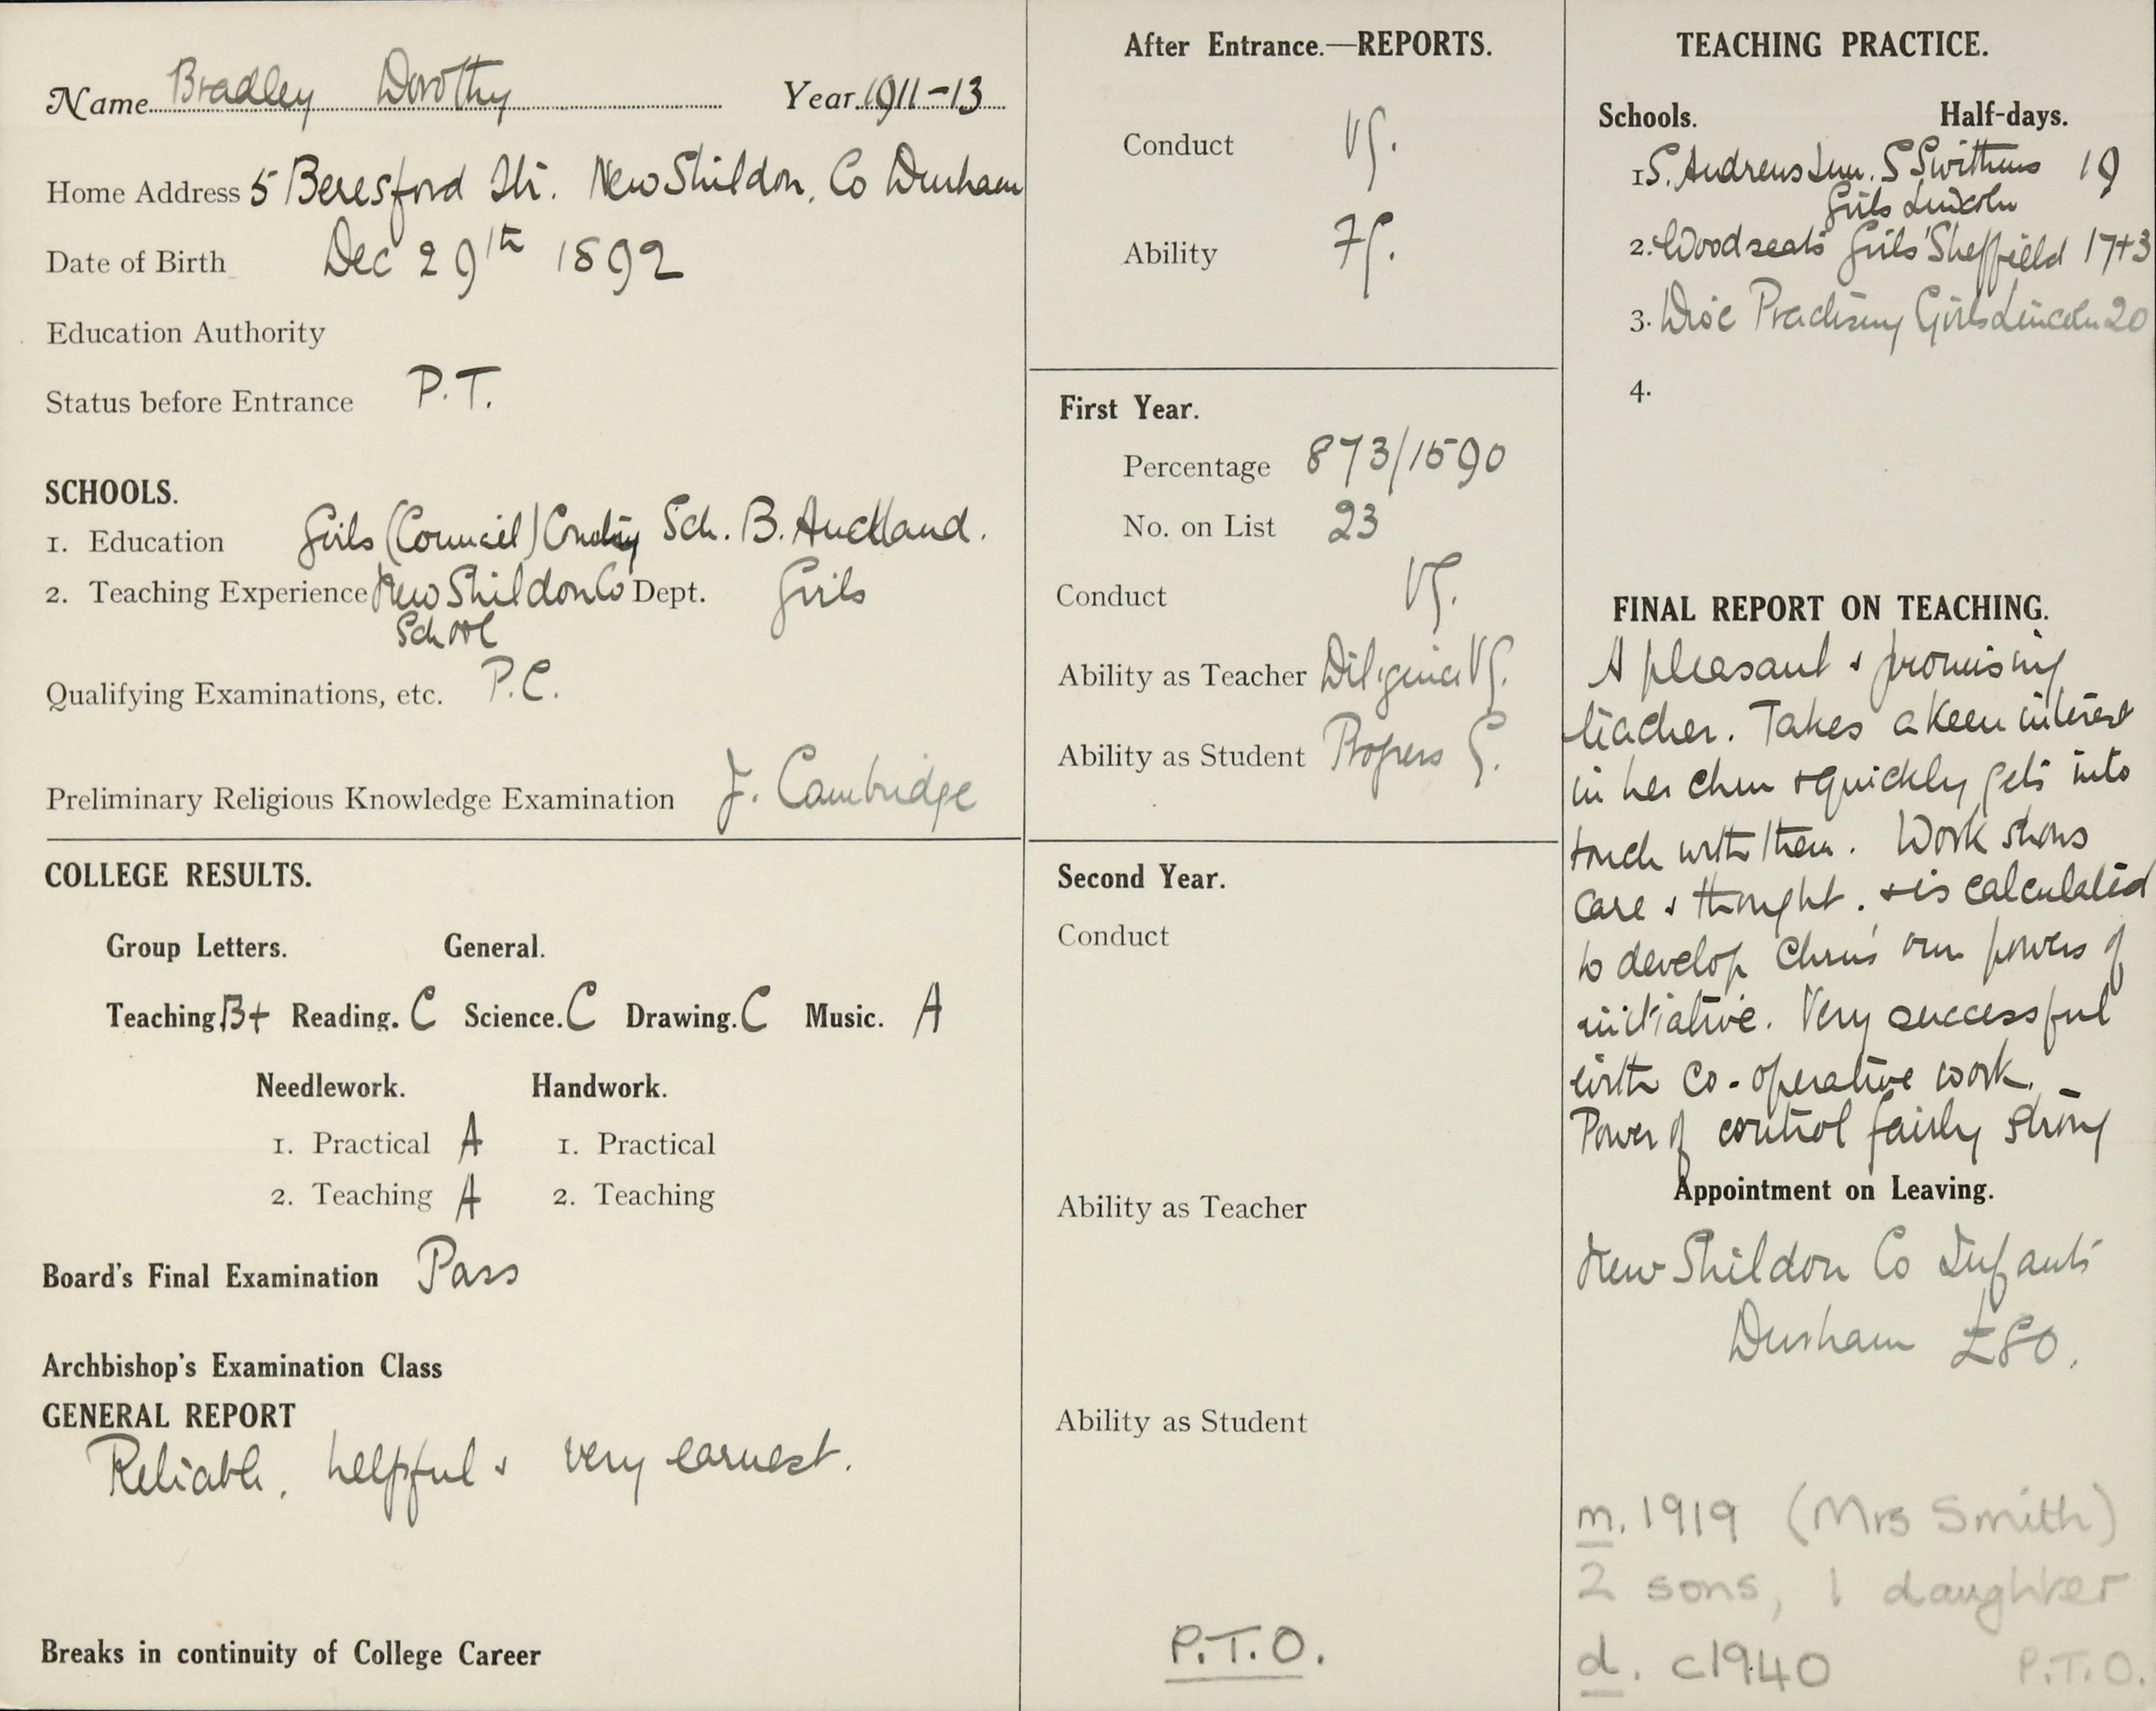 Name Bradley Dorothy Year 1911-13
Home Address 5 Beresford Str. New Shildon, Co Durham
Date of Birth Dec 29th 1892
Education Authority
Status before Entrance P.T.
SCHOOLS.
1. Education Girls (Council) County Sch. B. Auckland.
2. Teaching Experience New Shildon Co Dept. Girls
School
Qualifying Examinations, etc. P.C.
Preliminary Religious Knowledge Examination J. Cambridge
COLLEGE RESULTS.
Group Letters. General.
Teaching B+ Reading. C Science. C Drawing. C Music. A
Needlework. Handwork.
1. Practical A 1. Practical
2. Teaching A 2. Teaching
Board's Final Examination Pass
Archbishop's Examination Class
GENERAL REPORT
Reliable, helpful & very earnest.
Breaks in continuity of College Career
After Entrance.—REPORTS.
Conduct VG.
Ability FG.
First Year.
Percentage 873/1590
No. on List 23
Conduct VG.
Ability as Teacher Diligence VG.
Ability as Student Progress G.
Second Year.
Conduct
Ability as Teacher
Ability as Student
P.T.O.
TEACHING PRACTICE.
Schools. Half-days.
1. S. Andrews Jun. S Swithins 19
Girls Lincoln
2. Woodseats Girls' Sheffield 17+3
3. Dioc Practising Girls Lincoln 20
4.
FINAL REPORT ON TEACHING.
A pleasant & promising
teacher. Takes a keen interest
in her chn & quickly gets into
touch with them. Work shows
care & thought. & is calculated
to develop Chns' own powers of
initiative. Very successful
with co-operative work.
Power of control fairly strong
Appointment on Leaving.
New Shildon Co Infants
Durham £80.
m. 1919 (Mrs Smith)
2 sons, 1 daughter
d. c1940 P.T.O.